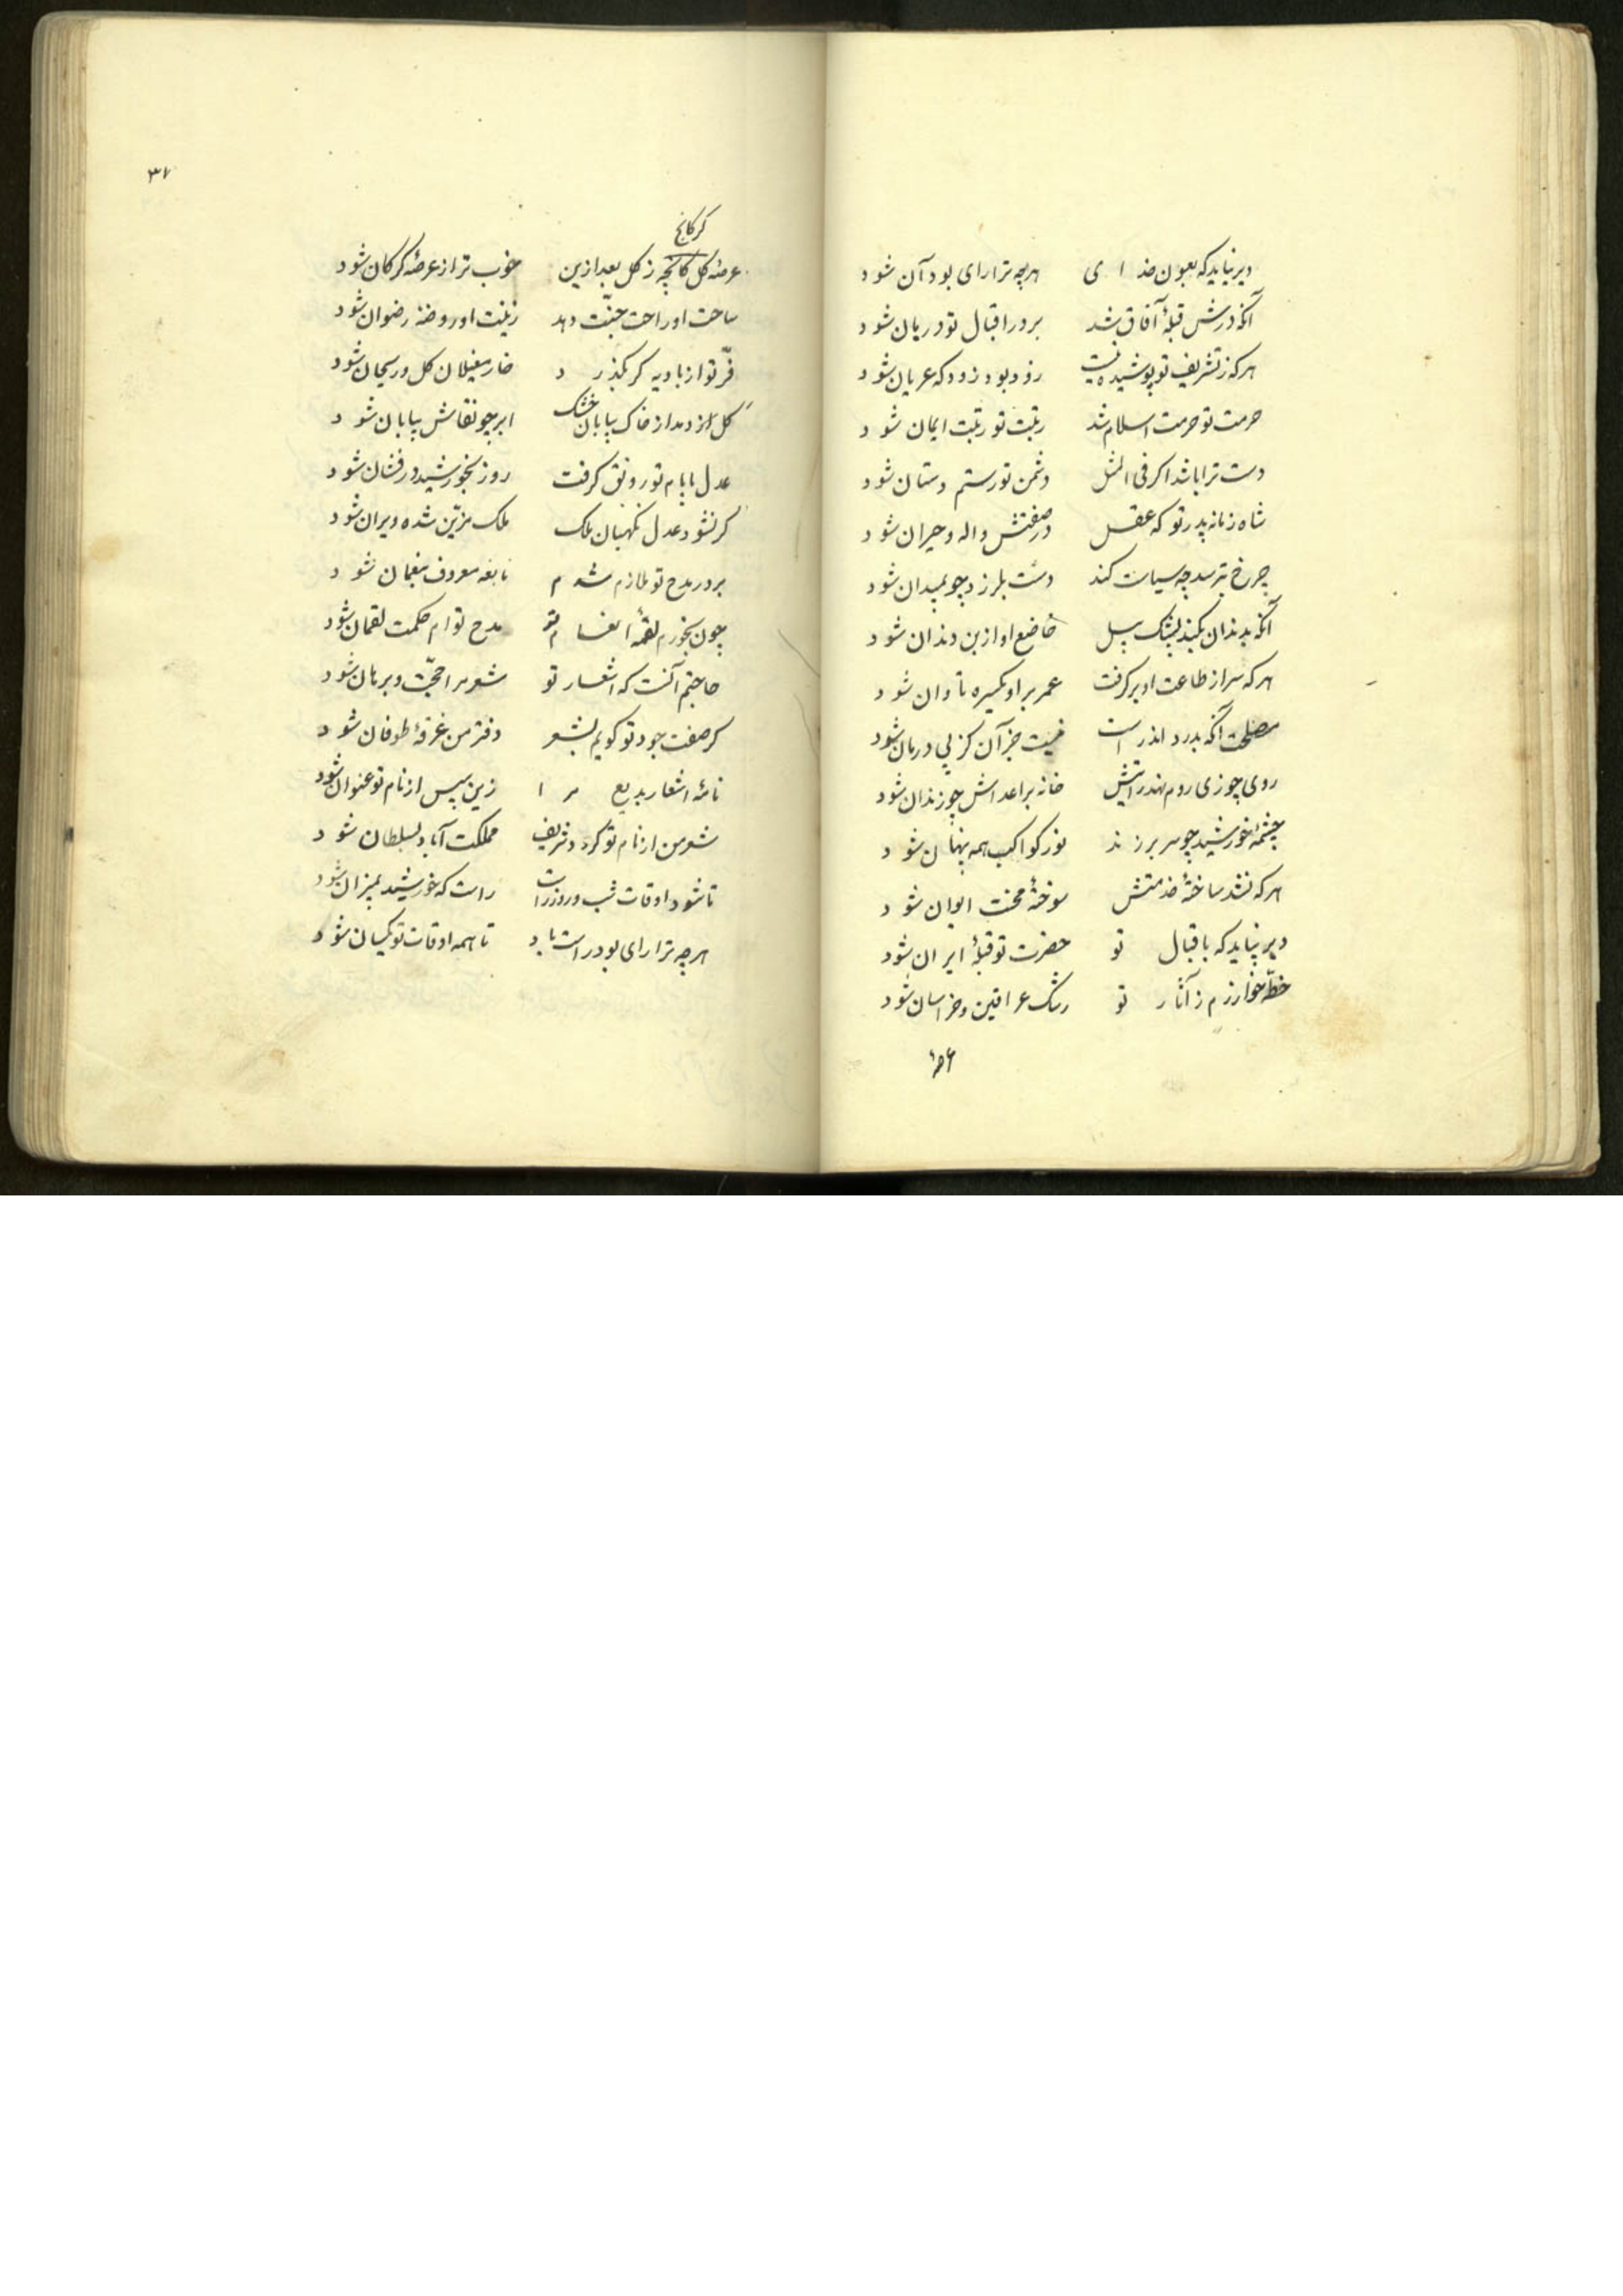 دیر نیاید که بعون خدای هرچه ترا رای بود آن شود
آنکه درش قبلهٔ آفاق شد بر در اقبال تو دربان شود
هرکه ز تشریف تو پوشیده نیست زود بود زود که عریان شود
حرمت تو حرمت اسلام شد رتبت تو رتبت ایمان شود
دست ترا باشد اگر فی المثل دشمن تو رستم دستان شود
شاه زمانه پدر تو که عقل در صفتش واله و حیران شود
چرخ بترسد چو سیاست کند دشت بلرزد چو بمیدان شود
آنکه بدندان بکند پیل خاضع او از بن دندان شود
هرکه سر از طاعت او برگرفت عمر بر او یکسره تاوان شود
مصلحت آنکه بدرد اندر است نیست جز آن کز پی درمان شود
روی چو زی روم نهد خانه بر اعداش چو زندان شود
چشمهٔ خورشید چو سر بر زند نور کواکب همه پنهان شود
هرکه نشد ساختهٔ خدمتش سوختهٔ محنت شود
دیر نیاید که باقبال تو حضرت تو قبلهٔ ایران شود
خطهٔ خوارزم ز آثار تو رشک عراقین و خراسان شود
عرصهٔ
۳۷
کرکانج
عرصهٔ کل کانچه ز کل بعد ازین خوب تر از عرصهٔ کرکان شود
ساحت او راحت جنّت دهد زینت او روضهٔ رضوان شود
فرّ تو از بادیه کر بکذرد خار مغیلان کل و ریحان شود
کل دمد از خاک بیابان خشک ابر چو نقاش بیابان شود
عدل بایام تو رونق کرفت روز بخورشید درفشان شود
کر نشود عدل نکهبان ملک ملک مزیّن شده ویران شود
بر در مدح تو ملازم شدم نابغه معروف بنعمان شود
چون بخورم لقمهٔ انعام تو مدح توام حکمت لقمان شود
حاجتم آنست که اشعار تو شعر مرا حجّت و برهان شود
کر صفت جود تو کویم بشعر دفتر من غرقهٔ طوفان شود
نامهٔ اشعار بدیع مرا زین سپس از نام تو عنوان شود
شعر من از نام تو کردد شریف مملکت آباد بسلطان شود
تا شود اوقات شب و روز راست راست که خورشید بمیزان شود
هرچه ترا رای بود راست باد تا همه اوقات تو یکسان شود